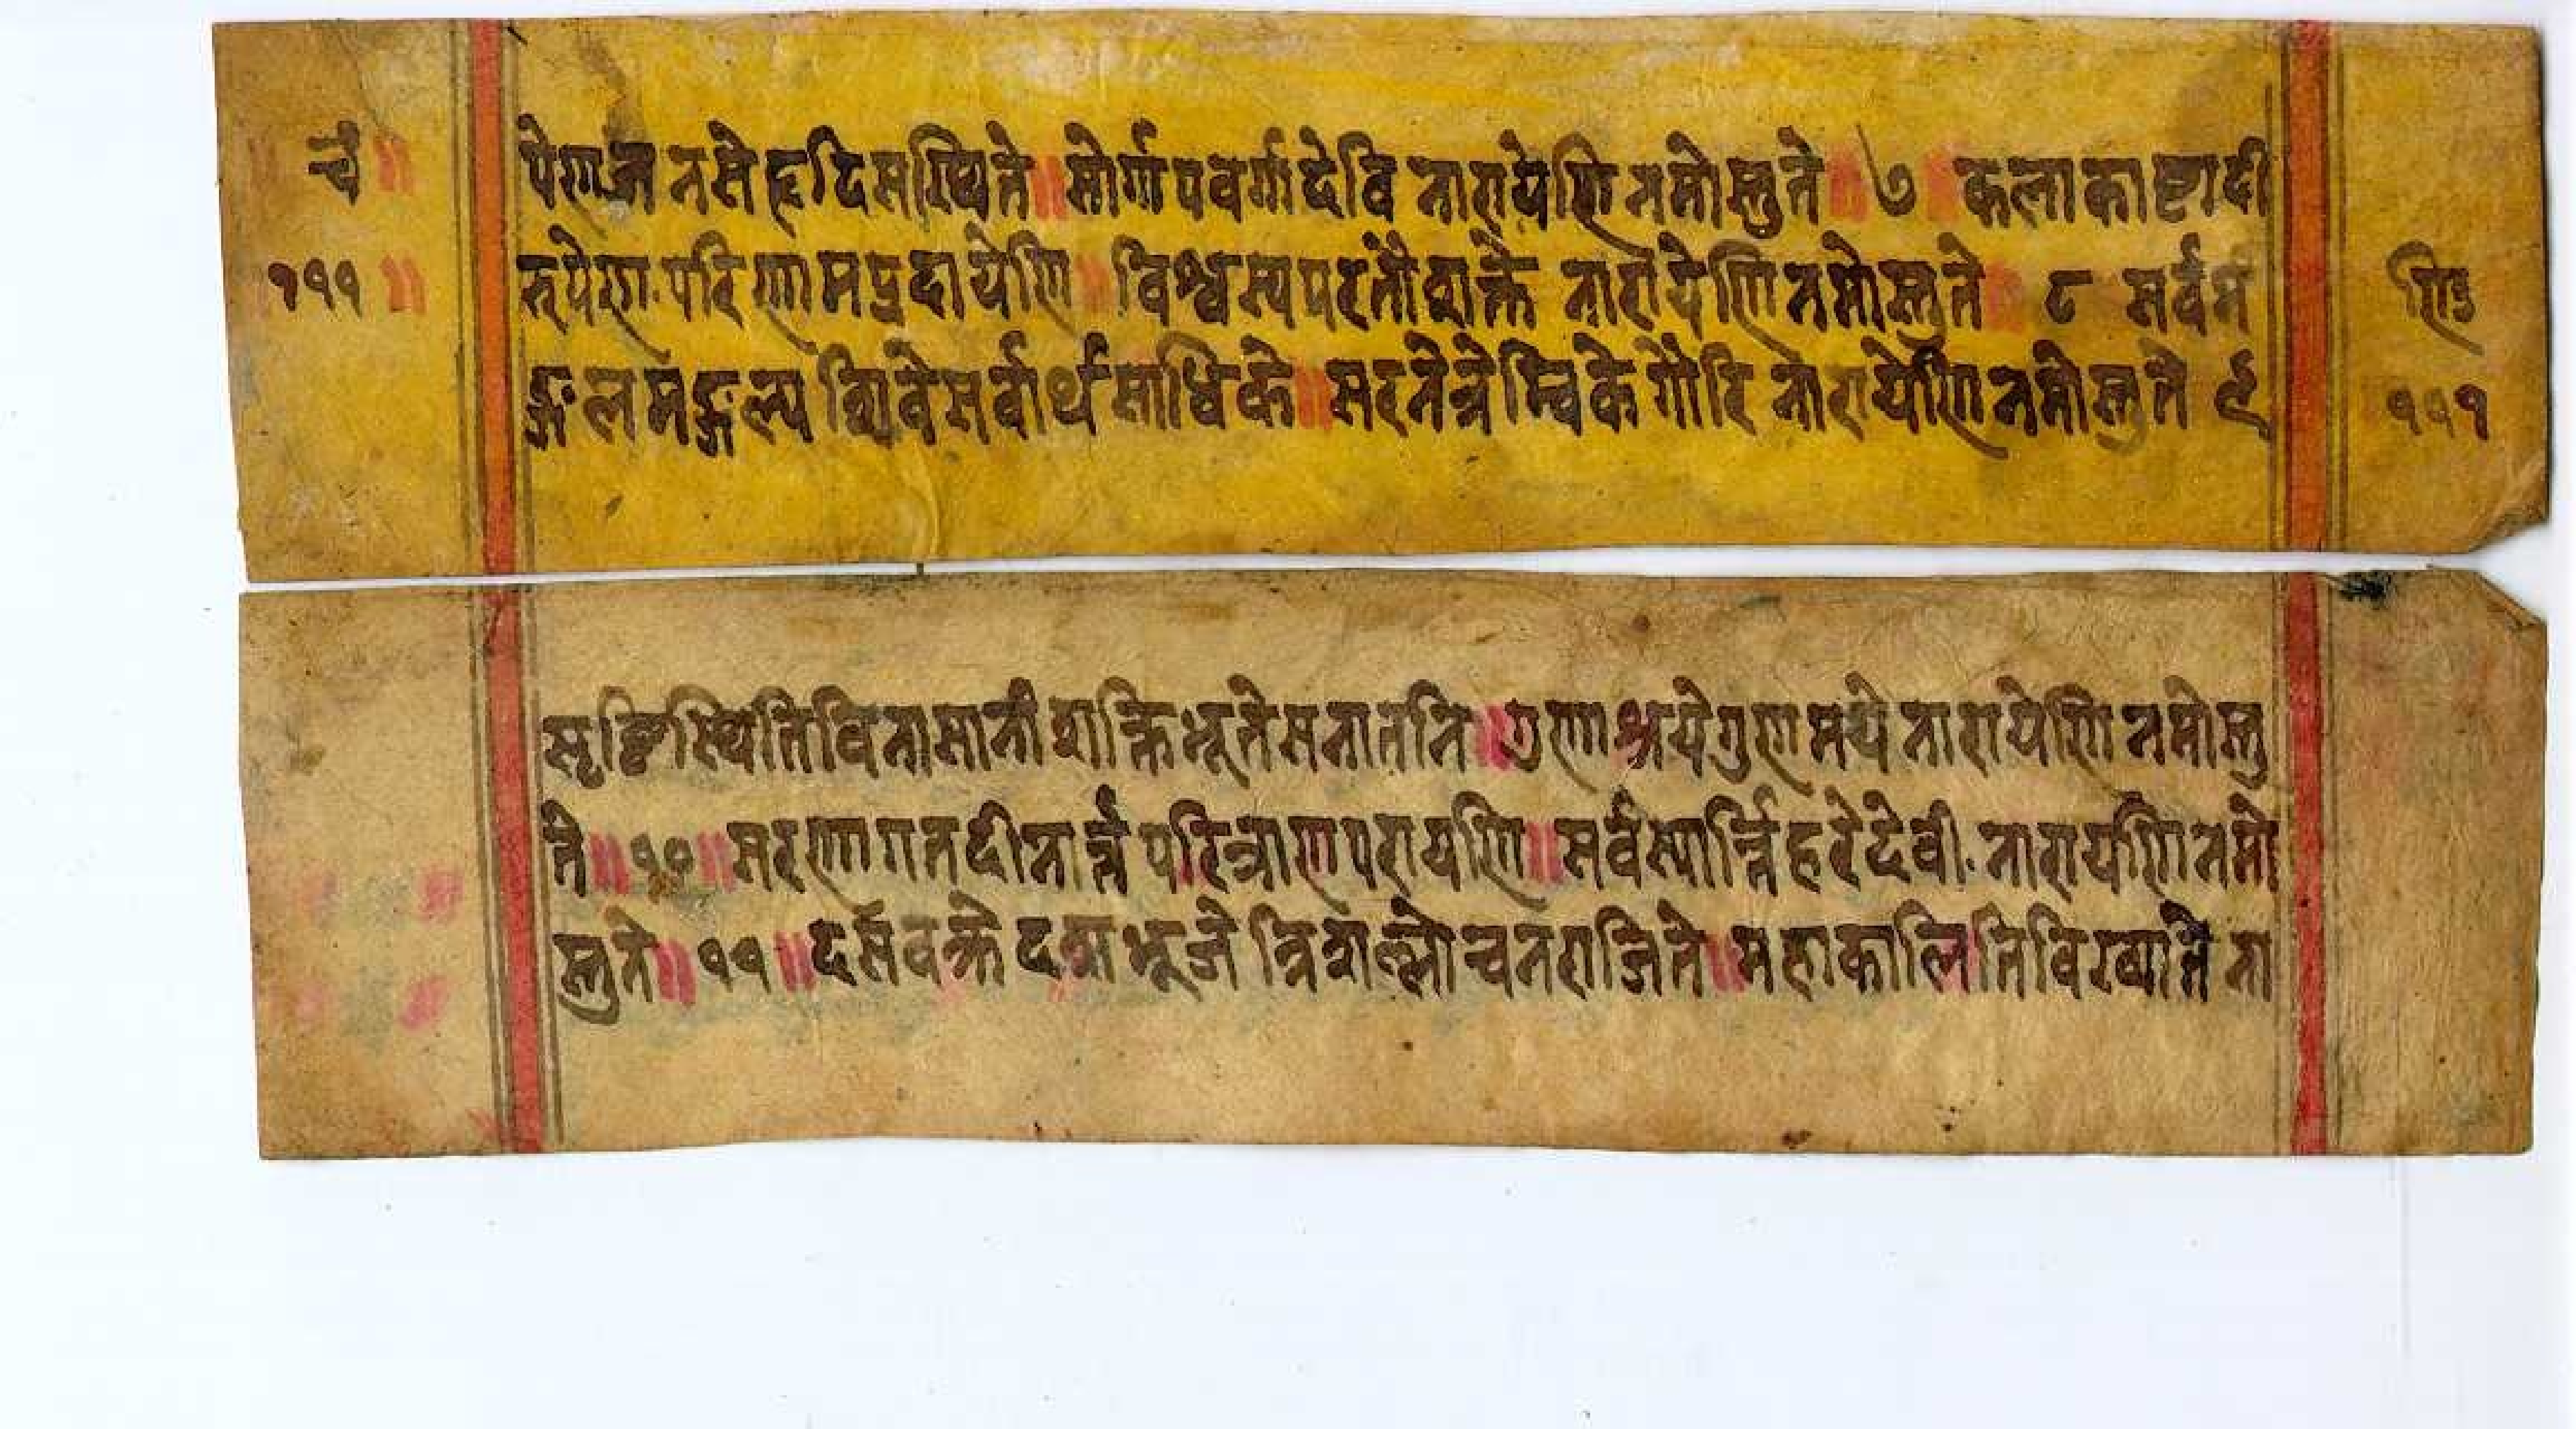 चं॥
१११॥
पेरणजनसे हृदि संस्थिते॥सोर्गापवर्गादेवि नारायेणि नमोस्तुते॥७॥कलाकाष्टादी
रुपेण.परिणामप्रदायेणि॥विश्वस्यपरतौशक्ते नारायेणिनमोस्तुते॥८ सर्वम
ङ्गलमङ्गल्य शिवेसर्वार्थसाधिके॥सरनेत्रेम्बिकेगौरि नारायेणिनमोस्तुते ९
ण्डि
१११
सृष्टिस्थितिविनासानीशक्तिभूतेसनातनि॥गुणाश्रयेगुणमये नारायेणि नमोस्तु
ते॥१०॥सरणागतदीनार्त्तं परित्राणपरायणि॥सर्वस्यार्त्तिहरेदेवी.नारायणिनमो
स्तुते॥११॥दसंवक्त्रे दशभूजे त्रिशल्लोचनराजिते॥महाकालितिविख्याते ना